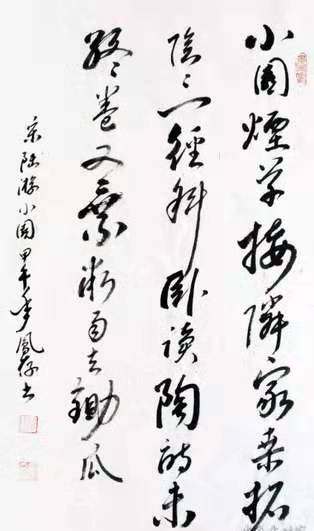 小園煙草接隣家桑柘
陰〻一徑斜卧讀陶詩未
終卷又乘微雨去鋤瓜
宋陸游小園甲午年鳳存书